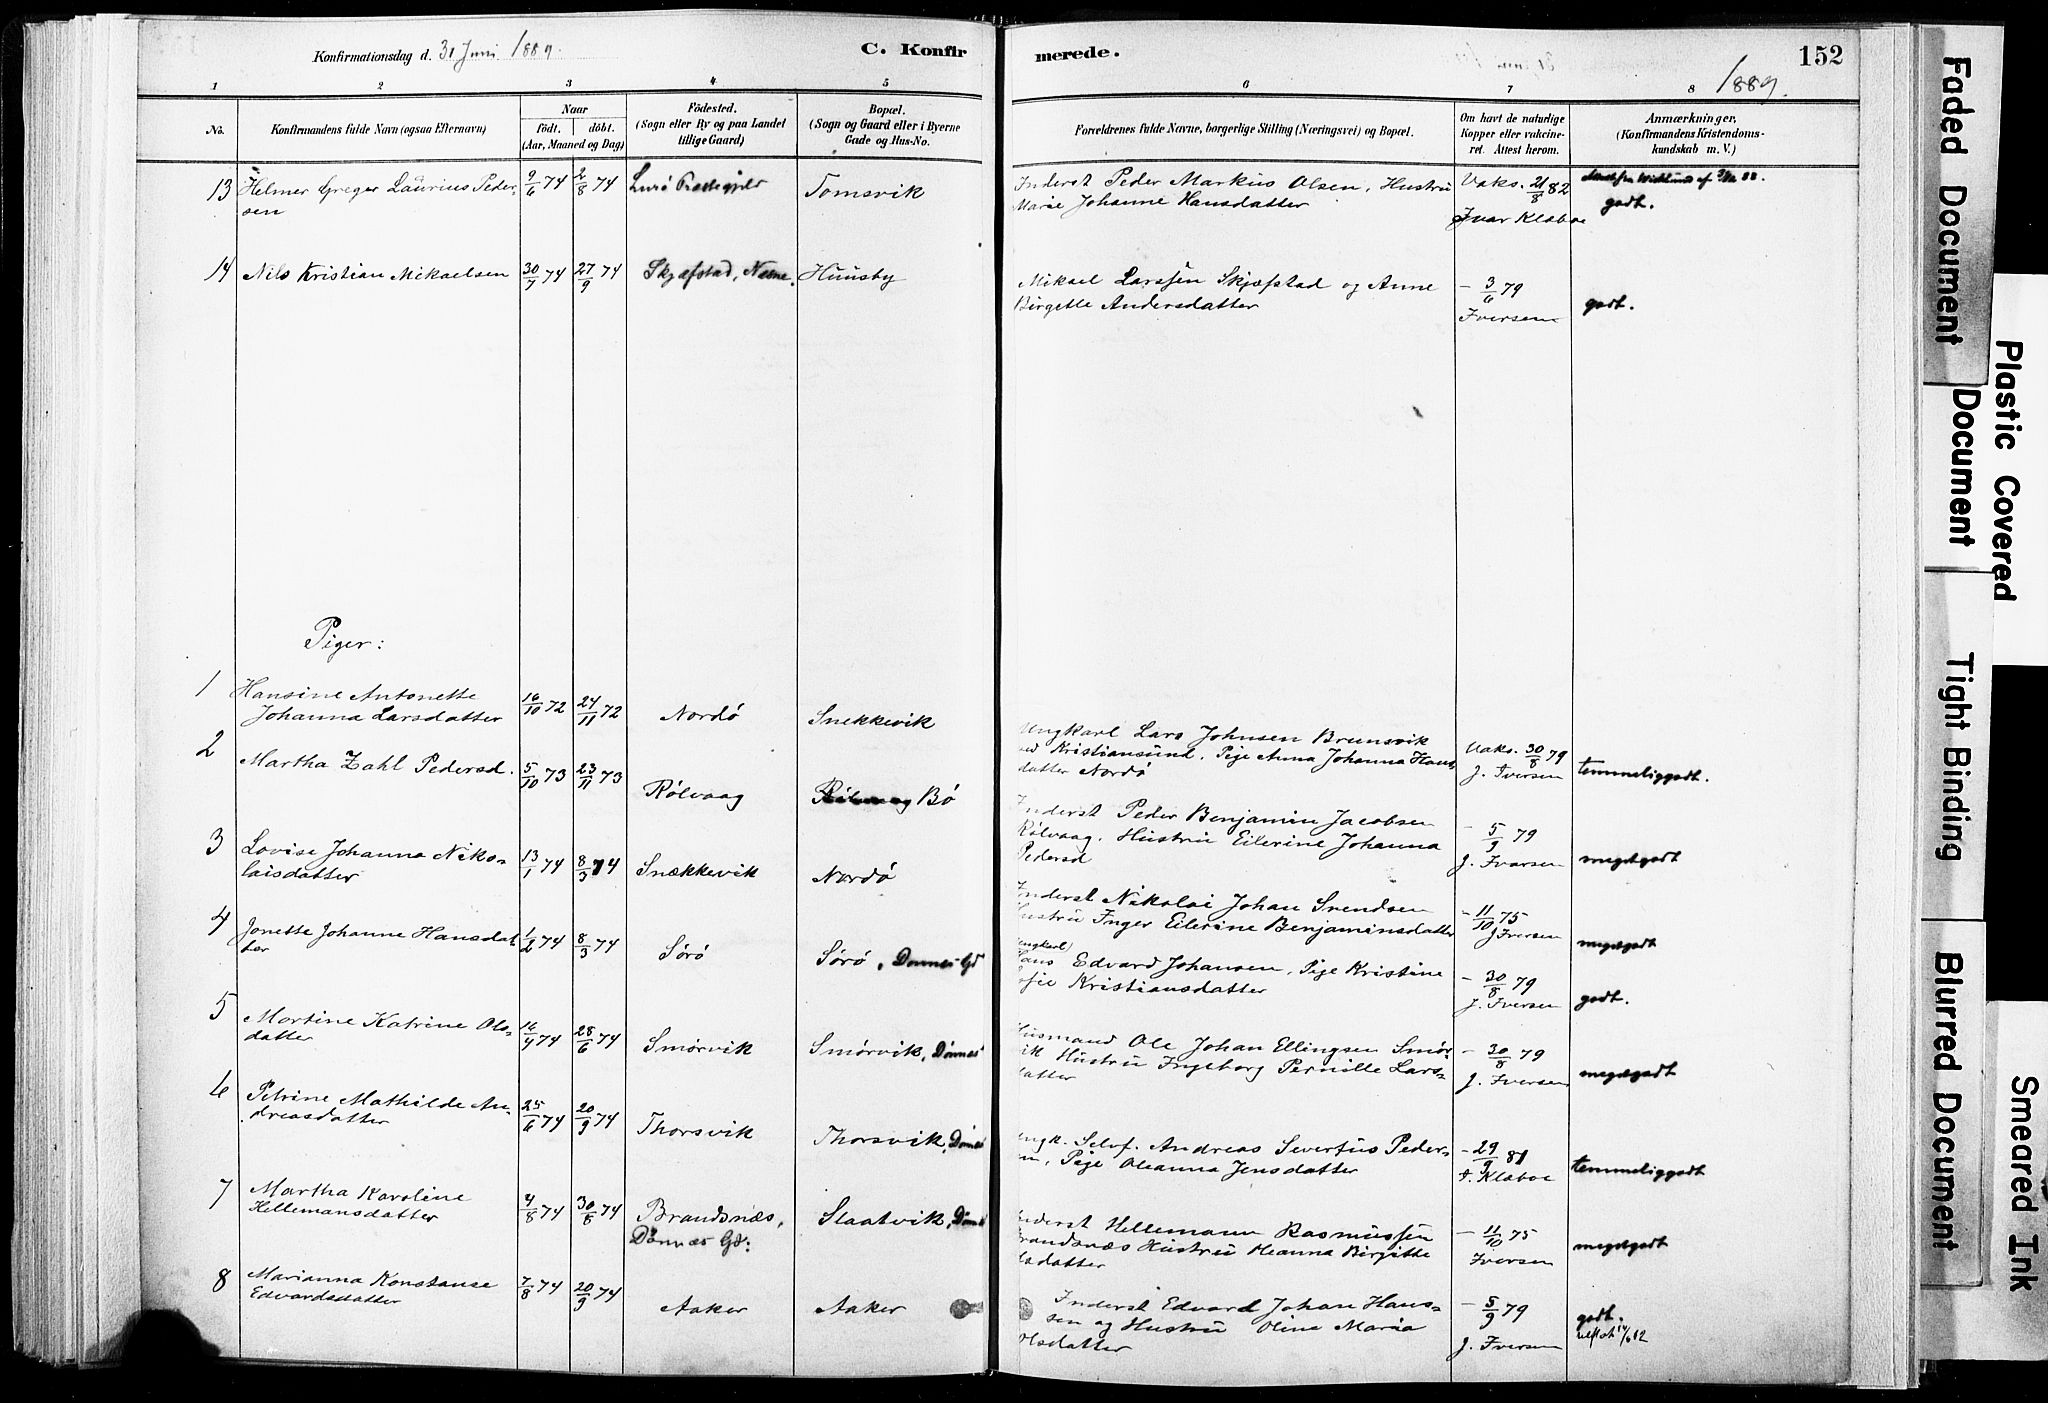 Konfirmationsdag d. 30 Juni 1889.
C. Konfirmerede.
152
1889.
1 2 3 4 5 6 7 8
No.
Konfirmandens fulde Navn (ogsaa Efternavn)
Naar
födt. döbt.
(Aar, Maaned og Dag)
Födested.
(Sogn eller By og paa Landet
tillige Gaard)
Bopæl.
(Sogn og Gaard eller i Byerne
Gade og Hus-No.
Forældrenes fulde Navne, borgerlige Stilling (Næringsvei) og Bopæl.
Om havt de naturlige
Kopper eller vakcine-
ret. Attest herom.
Anmærkninger.
(Konfirmandens Kristendoms-
kundskab m. V.)
13 Helmer Greger Laurius Peder-
sen
9/6 74 2/8 74 Lurö Præstegjeld Tomsvik
Inderst Peder Markus Olsen, Hustru
Marie Johanne Hansdatter
Vaks. 21/8 82
Ivar Klæboe
godt.
14 Nils Kristian Mikaelsen 30/7 74 27/9 74 Skjæfstad, Nesne. Huusby
Mikael Larssen Skjæfstad og Anne
Birgette Andersdatter
- 3/6 79
Iversen
godt.
Piger:
1 Hansine Antonette
Johanna Larsdatter
16/10 72 24/11 72 Nordö Snekkevik
Ungkarl Lars Johnsen Brunsvik
ved Kristiansund, Pige Anna Johanna Hans-
datter Nordö
Vaks. 30/8 79
J. Iversen
temmeliggodt.
2 Martha Zahl Pedersd. 5/10 73 23/11 73 Rölvaag Bö
Inderst Peder Benjamin Jacobsen
Rölvaag. Hustru Eilerine Johanna
Pedersd
- 5/9 79
J. Iversen
megetgodt
3 Lovise Johanna Niko-
laisdatter
13/1 74 8/3 74 Snækkevik Nordö
Inderst Nikolai Johan Svendsen
Hustru Inger Eilerine Benjaminsdatter
- 11/10 75
J Iversen
megetgodt
4 Jonette Johanne Hansdat
ter
1/2 74 8/3 74 Sörö Sörö, Dønnes Gd
Ungkarl
Hans Edvard Johansen, Pige Kristine
Sofie Kristiansdatter
- 30/8 79
J. Iversen
godt.
5 Martine Katrine Ols-
datter
16/4 74 28/6 74 Smörvik Smörvik, Dönnes
Husmand Ole Johan Ellingsen Smör-
vik Hustru Ingeborg Pernille Lars-
datter
- 30/8 79
J. Iversen
megetgodt
6 Petrine Mathilde An-
dreasdatter
25/6 74 20/9 74 Thorsvik Thorsvik, Dönnes
Ungk. Selvf. Andreas Severtus Peder-
sen, Pige Oleanna Jensdatter
- 29/9 81
I. Klæboe
temmeliggodt
7 Martha Karoline
Hellemansdatter
4/8 74 30/8 74 Brandsnæs,
Dønnæs Gd: Slaatvik, Dönnes
Inderst Hellemann Rasmussen
Brandsnæs Hustru Oleanna Birgitte
Olsdatter
- 11/10 75
Iversen
megetgodt
8 Marianna Konstanse
Edvardsdatter
7/8 74 20/9 74 Aaker Aaker
Inderst Edvard Johan Hans-
sen og Hustru Oline Maria
Olsdatter
- 5/9 79
J. Iversen
godt.
Faded Document
Plastic Covered Document
Tight Binding
Blurred Document
Smeared Ink